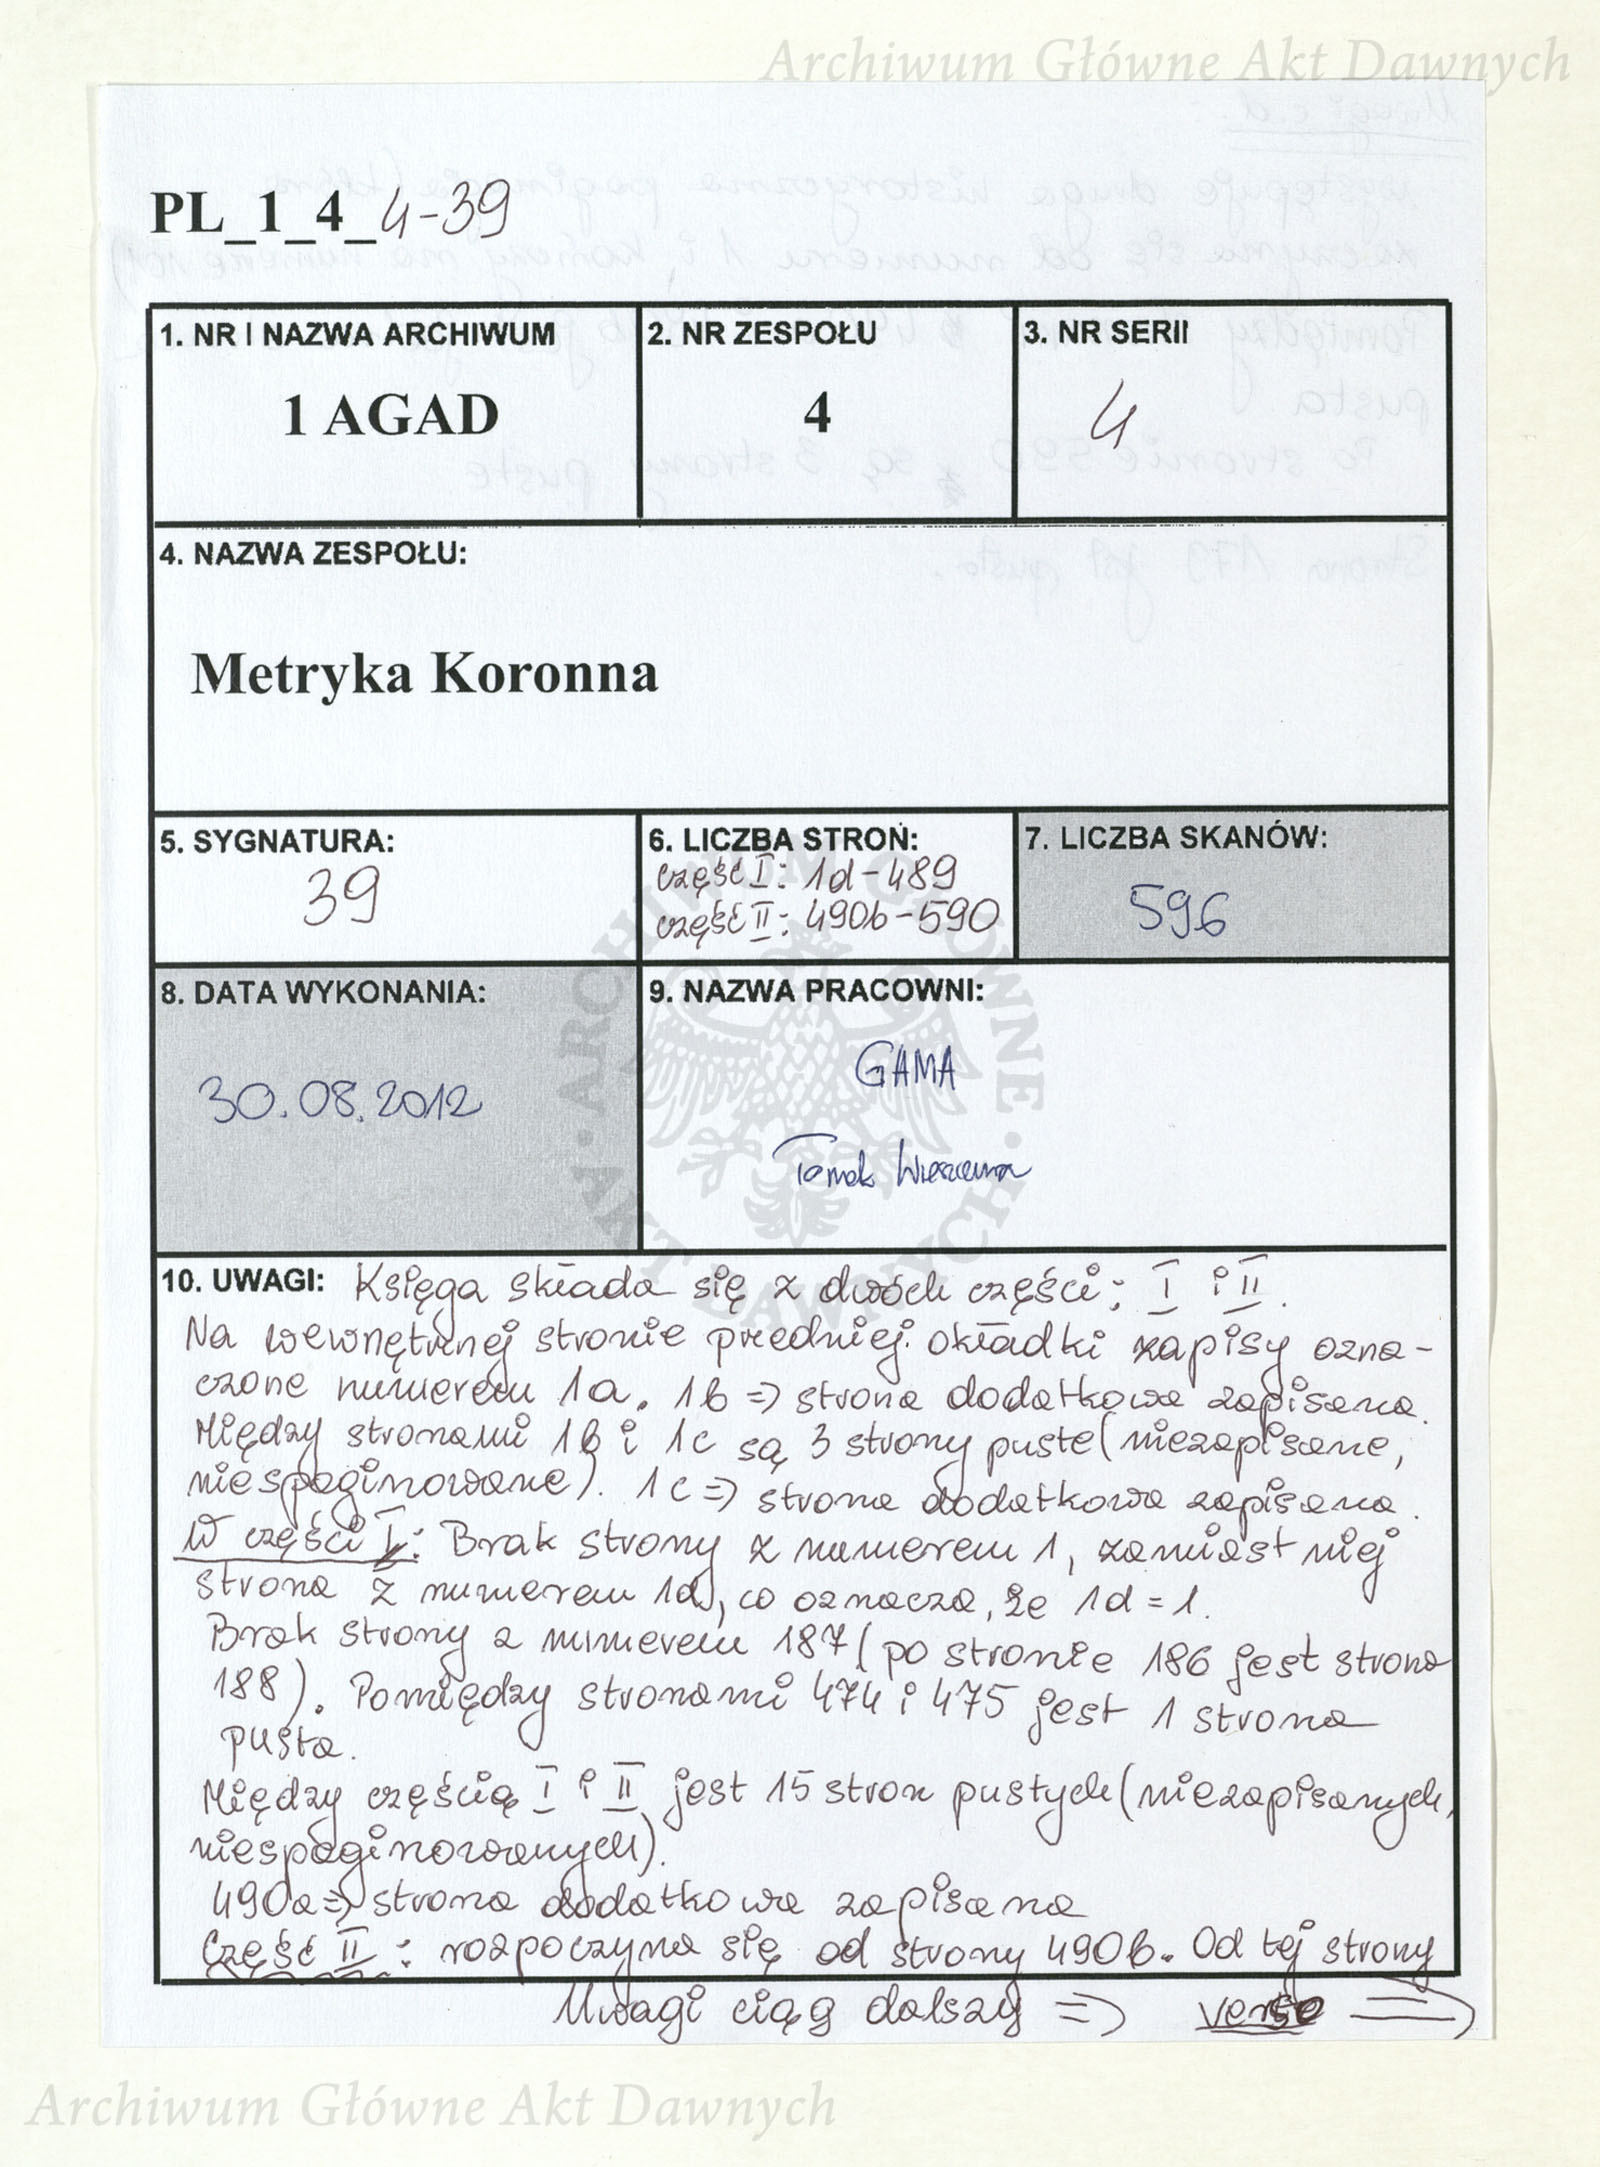 Archiwum Główne Akt Dawnych
PL_1_4_4-39
1. NR I NAZWA ARCHIWUM
1 AGAD
2. NR ZESPOŁU
4
3. NR SERII
4
4. NAZWA ZESPOŁU:
Metryka Koronna
5. SYGNATURA:
39
6. LICZBA STRON:
część I: 1d-489
część II: 490b-590
7. LICZBA SKANÓW:
596
8. DATA WYKONANIA:
30.08.2012
9. NAZWA PRACOWNI:
GAMA
Tomek
ARCHIWUM GŁÓWNE AKT DAWNYCH
10. UWAGI: Księga składa się z dwóch części: I i II.
Na wewnętrznej stronie przedniej okładki zapisy ozna-
czone numerem 1a. 1b => strona dodatkowa zapisana.
Między stronami 1b i 1c są 3 strony puste (niezapisane,
niespaginowane). 1c => strona dodatkowa zapisana.
W części I: Brak strony z numerem 1, zamiast niej
strona z numerem 1d, co oznacza, że 1d = 1.
Brak strony z numerem 187 (po stronie 186 jest strona
188). Pomiędzy stronami 474 i 475 jest 1 strona
pusta.
Między częścią I i II jest 15 stron pustych (niezapisanych,
niespaginowanych).
490a => strona dodatkowa zapisana
Część II: rozpoczyna się od strony 490b. Od tej strony
Uwagi ciąg dalszy => verso =>
Archiwum Główne Akt Dawnych